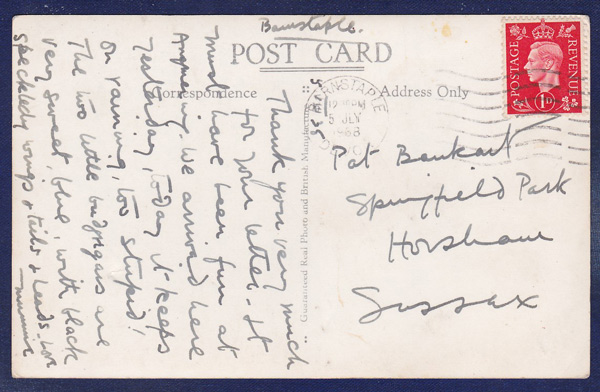 Barnstaple.
POST CARD
Correspondence
Address Only
Thank you very much
for your letter. It
must have been fun at
we arrived here
yesterday, today it keeps
on raining, too stupid!
The two little budgigars are
very sweet, blue, with black
speckledy wings & tails & heads. Love
BARNSTAPLE
5 JLY
Guaranteed Real Photo and British Manufacture
POSTAGE
REVENUE
1D
Pat
Springfield Park
Horsham
Sussex